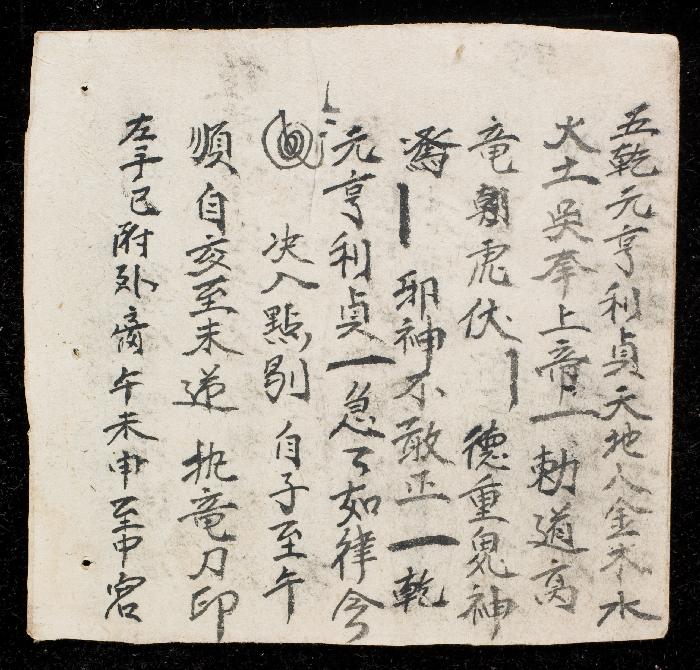 五乾元亨利貞天地人金木水
火土吳奉上帝上一勅道高
竜朝虎伏一德重鬼神
驚一邪神不敢正一乾
元亨利貞一急〻如律令
決入點剔自子至午
順自亥至未逆执竜刀印
左手已附外 午未申至中宮